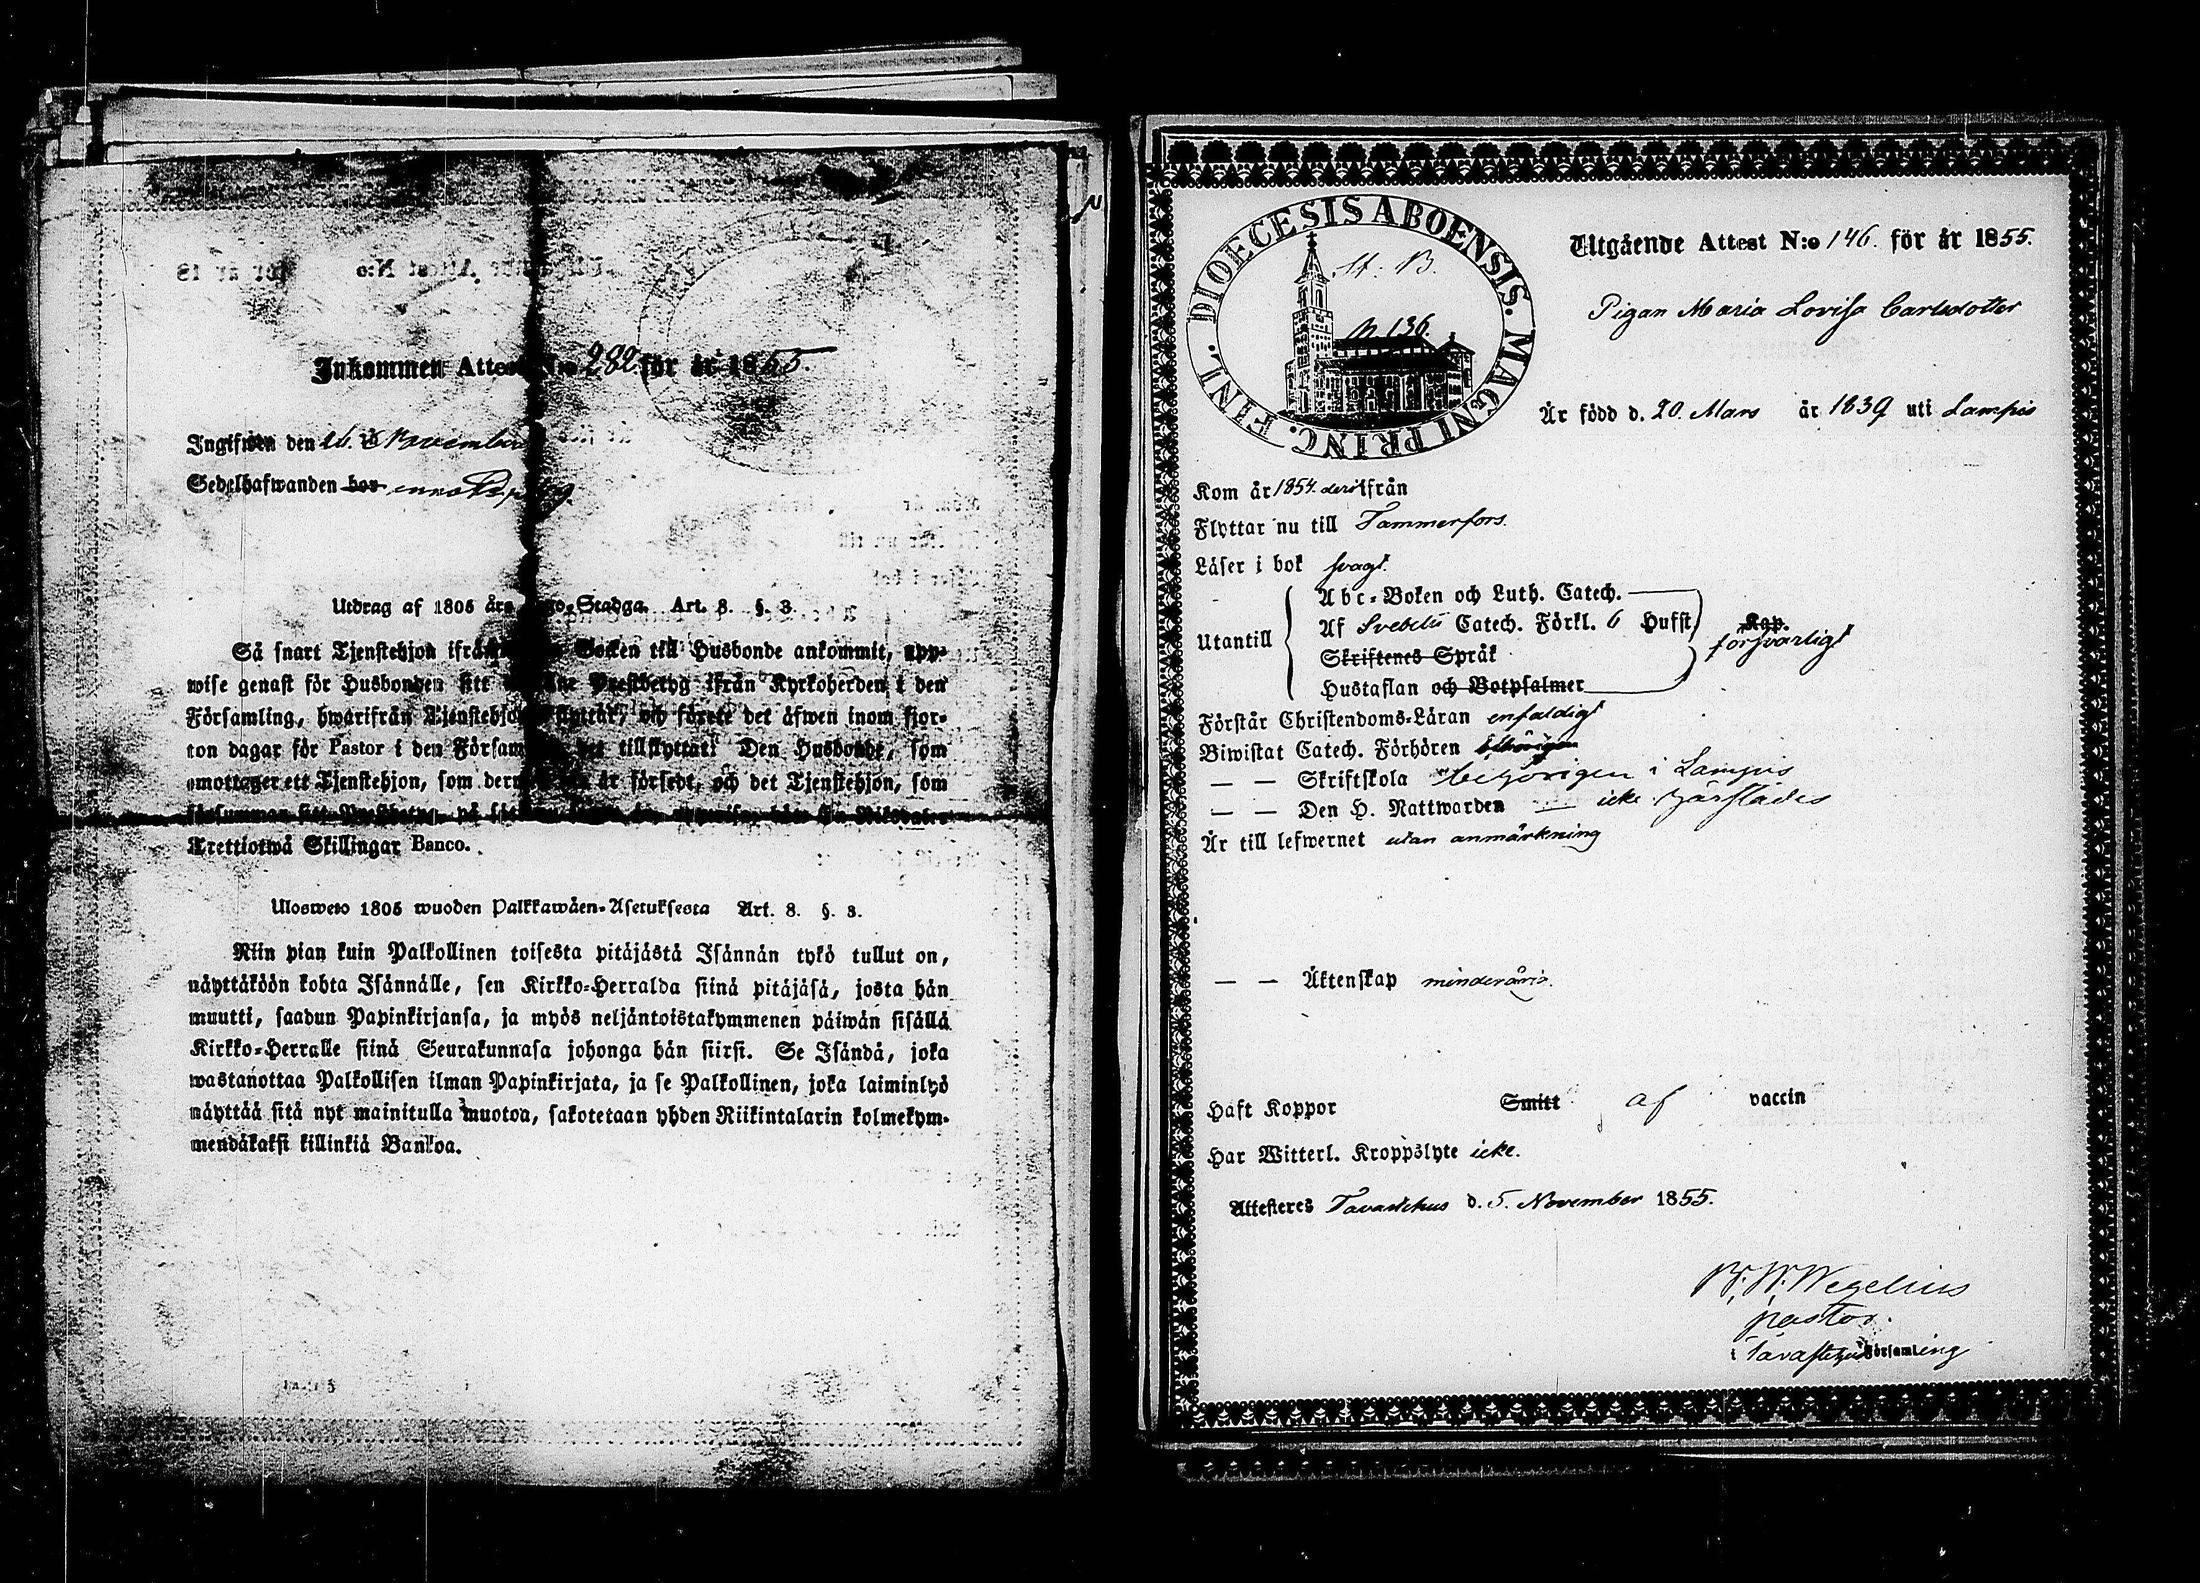 Inkommen Attest N:o 282 för år 1855.
Ingifwen den 16. November
Sedelhafwanden bor
Utdrag af 1805 års Lego-Stadga. Art. 8. §. 3.
Så snart Tjenstehjon ifrån Socken till Husbonde ankommit, upp-
wise genast för Husbonden sitt Prestbetyg ifrån Kyrkoherden i den
Församling, hwarifrån Tjenstehjonet flyttat, och förete det äfwen inom fjor-
ton dagar för Pastor i den Församling det tillflyttat. Den Husbonde, som
emottager ett Tjenstehjon, som dermed är försedt, och det Tjenstehjon, som
försummar sitt Prestbetyg på Riksdaler
Trettiotwå Skillingar Banco.
Uloswето 1805 wuoden Palkkawäen-Asetuksesta Art. 8. §. 3.
Niin pian kuin Palkollinen toisesta pitäjästä Isännän tykö tullut on,
näyttäköön kohta Isännälle, sen Kirkko-Herralda siinä pitäjäsä, josta hän
muutti, saadun Papinkirjansa, ja myös neljäntoistakymmenen päiwän sisällä
Kirkko-Herralle siinä Seurakunnasa johonga hän siirsi. Se Isändä, joka
wastanottaa Palkollisen ilman Papinkirjata, ja se Palkollinen, joka laiminlyö
näyttää sitä nyt mainitulla muotoa, sakotetaan yhden Riikintalarin kolmekym-
mendäkaksi killinkiä Bankoa.
DIOECESIS ABOENSIS. MAGNI PRINC. FINL.
N 136.
Utgående Attest N:o 146. för år 1855.
Pigan Maria Lovisa Carlsdotter
Är född d. 20. Mars år 1839 uti Lampis
Kom år 1854. derifrån
Flyttar nu till Tammerfors.
Läser i bok svagt.
Utantill
Abc-Boken och Luth. Catech.
Af Svebelii Catech. Förkl. 6 Hufst. Kap.
försvarligt
Skriftenes Språk
Hustaflan och Botpsalmer
Förstår Christendoms-Läran enfaldigt
Biwistat Catech. Förhören behörigen
— — Skriftskola behörigen i Lampis
— — Den H. Nattwarden icke härstädes
Är till lefwernet utan anmärkning
— — Äktenskap minderårig.
Haft Koppor Smitt af vaccin
Har Witterl. Kroppslyte icke.
Attesteres Tavastehus d. 5. November 1855.
Wegelius
pastor.
i Tavastehus Församling